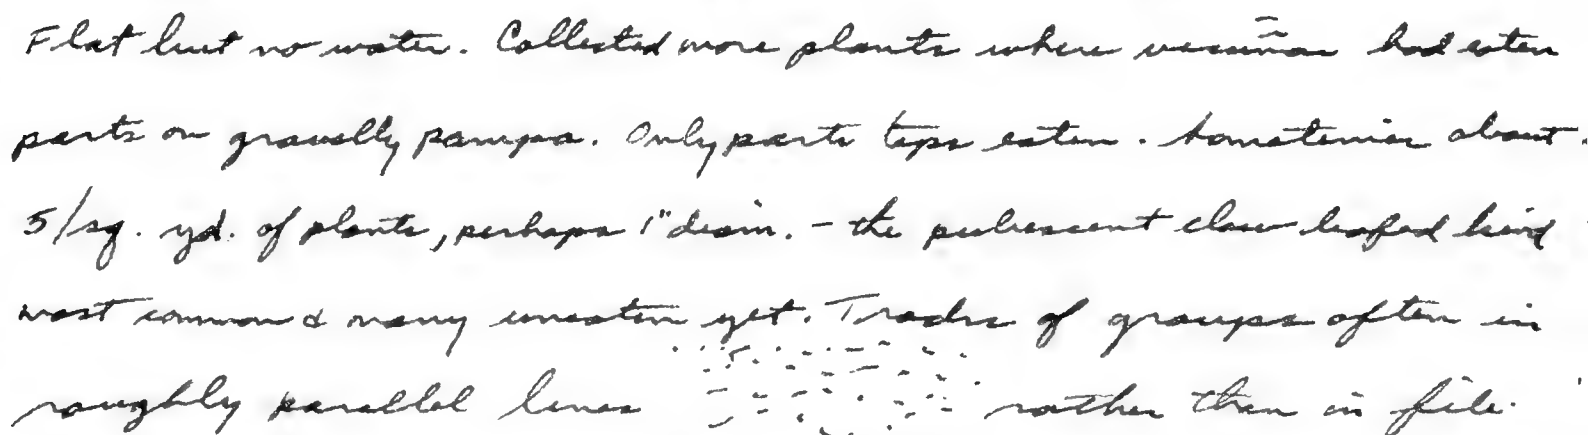 Flat but no water. Collected more plants where vicuñas had eaten
parts on gravelly pampa. Only parts tops eaten. Sometimes about
5/sq. yd. of plants, perhaps 1" diam. - the pubescent claw leafed kind
most common & many uneaten yet. Tracks of groups often in
roughly parallel lines rather than in file.